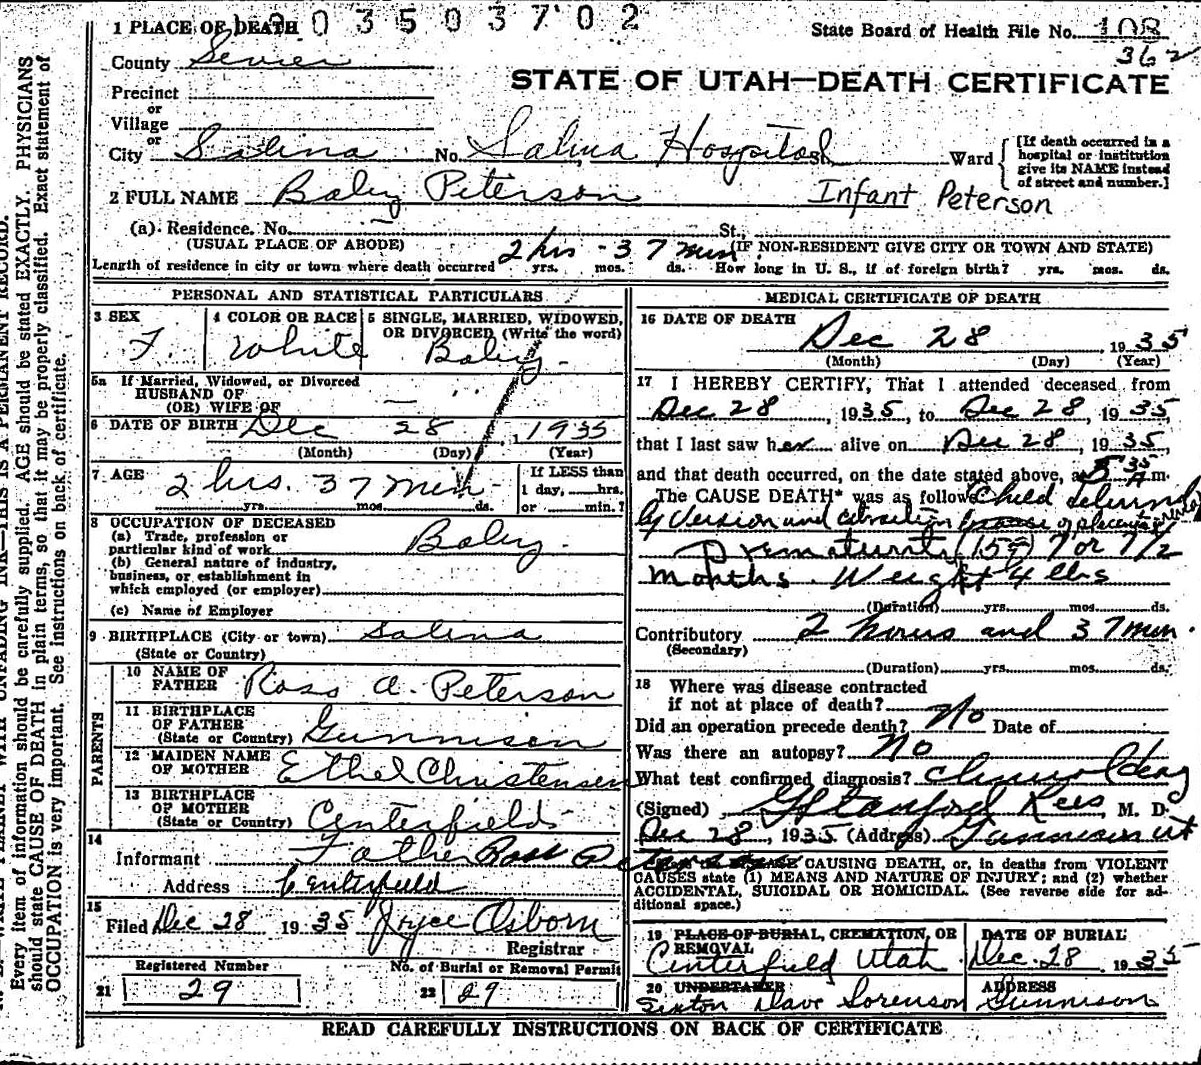 1 PLACE OF DEATH 03503702
State Board of Health File No. 108
362
County Sevier
STATE OF UTAH—DEATH CERTIFICATE
Precinct
or
Village
or
City Salina No. Salina Hospital St. Ward [If death occurred in a hospital or institution give its NAME instead of street and number.]
2 FULL NAME Baby Peterson Infant Peterson
(a) Residence. No. St.,
(USUAL PLACE OF ABODE) 2 hrs - 37 min. (IF NON-RESIDENT GIVE CITY OR TOWN AND STATE)
Length of residence in city or town where death occurred yrs. mos. ds. How long in U. S., if of foreign birth? yrs. mos. ds.
PERSONAL AND STATISTICAL PARTICULARS
3 SEX F.
4 COLOR OR RACE White
5 SINGLE, MARRIED, WIDOWED, OR DIVORCED (Write the word) Baby
5a If Married, Widowed, or Divorced
HUSBAND OF
(OR) WIFE OF
6 DATE OF BIRTH Dec 28, 1935
(Month) (Day) (Year)
7 AGE 2 hrs. 37 min.
yrs. mos. ds.
If LESS than
1 day, hrs.
or min.?
8 OCCUPATION OF DECEASED
(a) Trade, profession or
particular kind of work Baby
(b) General nature of industry,
business, or establishment in
which employed (or employer)
(c) Name of Employer
9 BIRTHPLACE (City or town) Salina
(State or Country)
PARENTS
10 NAME OF FATHER Ross A. Peterson
11 BIRTHPLACE OF FATHER
(State or Country) Gunnison
12 MAIDEN NAME OF MOTHER Ethel Christensen
13 BIRTHPLACE OF MOTHER
(State or Country) Centerfield
14
Informant Father Ross
Address Centerfield
15
Filed Dec 28 1935 Joyce Osborn
Registrar
Registered Number
21 29
No. of Burial or Removal Permit
22 29
MEDICAL CERTIFICATE OF DEATH
16 DATE OF DEATH
Dec 28 1935
(Month) (Day) (Year)
17 I HEREBY CERTIFY, That I attended deceased from
Dec 28, 1935, to Dec 28, 1935,
that I last saw her alive on Dec 28, 1935,
and that death occurred, on the date stated above, at 5 35 A.m.
The CAUSE DEATH* was as follows Child delivered
by version and extraction of placenta
Prematurity 7 or 7 1/2
months. Weight 4 lbs
(Duration) yrs. mos. ds.
Contributory 2 hours and 37 min.
(Secondary)
(Duration) yrs. mos. ds.
18 Where was disease contracted
if not at place of death?
Did an operation precede death? No Date of
Was there an autopsy? No
What test confirmed diagnosis?
(Signed) G Stanford Rees, M. D.
Dec 28, 1935 (Address) Gunnison Ut
CAUSING DEATH, or, in deaths from VIOLENT
CAUSES state (1) MEANS AND NATURE OF INJURY; and (2) whether
ACCIDENTAL, SUICIDAL OR HOMICIDAL. (See reverse side for additional space.)
19 PLACE OF BURIAL, CREMATION, OR REMOVAL
Centerfield Utah
DATE OF BURIAL
Dec. 28 1935
20 UNDERTAKER
Sexton Dave Sorenson
ADDRESS
Gunnison
READ CAREFULLY INSTRUCTIONS ON BACK OF CERTIFICATE
WRITE PLAINLY WITH UNFADING INK—THIS IS A PERMANENT RECORD.
Every item of information should be carefully supplied. AGE should be stated EXACTLY. PHYSICIANS
should state CAUSE OF DEATH in plain terms, so that it may be properly classified. Exact statement of
OCCUPATION is very important. See instructions on back of certificate.